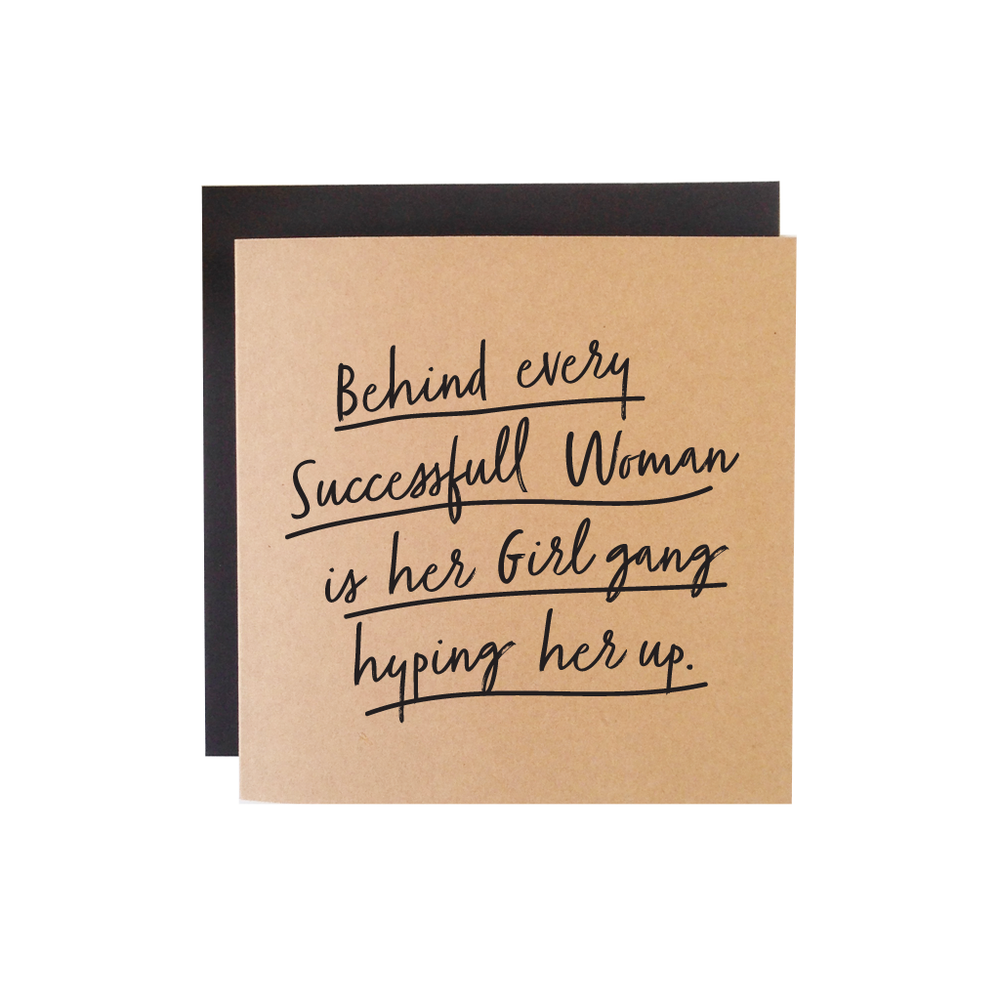 Behind every
Successfull Woman
is her Girl gang
hyping her up.